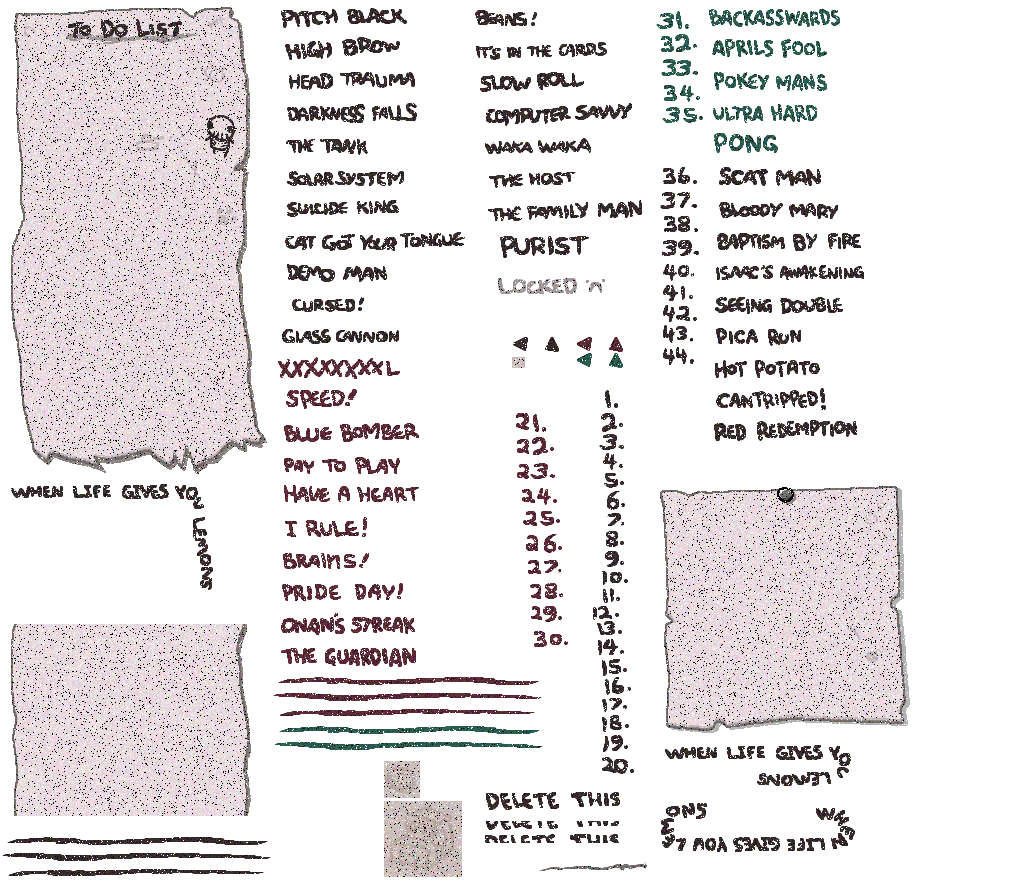 To Do List
PITCH BLACK
HIGH BROW
HEAD TRAUMA
DARKNESS FALLS
THE TANK
SOLAR SYSTEM
SUICIDE KING
CAT GOT YOUR TONGUE
DEMO MAN
CURSED!
GLASS CANNON
XXXXXXXXL
SPEED!
BLUE BOMBER
PAY TO PLAY
HAVE A HEART
I RULE!
BRAINS!
PRIDE DAY!
ONAN'S STREAK
THE GUARDIAN
BEANS!
IT'S IN THE CARDS
SLOW ROLL
COMPUTER SAVVY
WAKA WAKA
THE HOST
THE FAMILY MAN
PURIST
LOCKED 'n'
21.
22.
23.
24.
25.
26.
27.
28.
29.
30.
1.
2.
3.
4.
5.
6.
7.
8.
9.
10.
11.
12.
13.
14.
15.
16.
17.
18.
19.
20.
31.
32.
33.
34.
35.
36.
37.
38.
39.
40.
41.
42.
43.
44.
BACKASSWARDS
APRILS FOOL
POKEY MANS
ULTRA HARD
PONG
SCAT MAN
BLOODY MARY
BAPTISM BY FIRE
ISAAC'S AWAKENING
SEEING DOUBLE
PICA RUN
HOT POTATO
CANTRIPPED!
RED REDEMPTION
WHEN LIFE GIVES YOU LEMONS
DELETE THIS
DELETE THIS
DELETE THIS
WHEN LIFE GIVES YOU LEMONS
WHEN LIFE GIVES YOU LEMONS